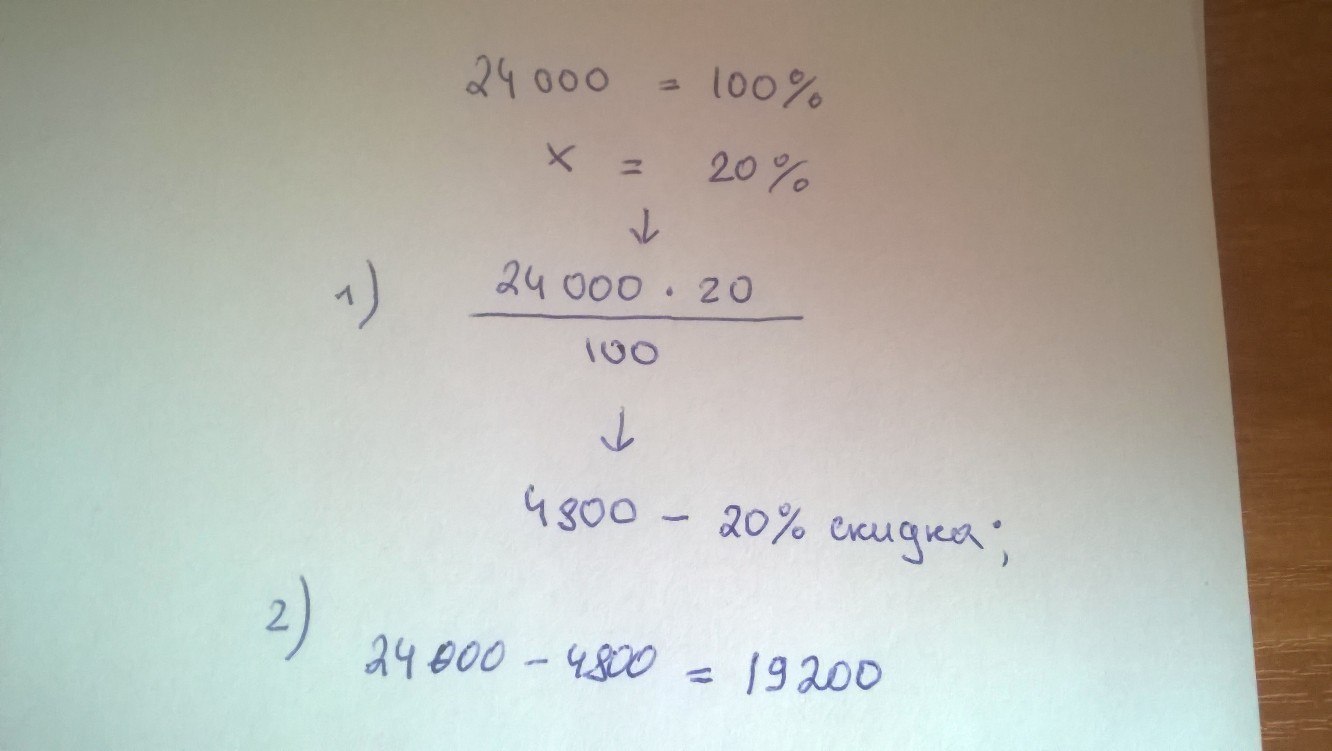 24 000 = 100%
x = 20%
↓
1) 24 000 · 20
100
↓
4800 - 20% скидка;
2) 24 000 - 4800 = 19200